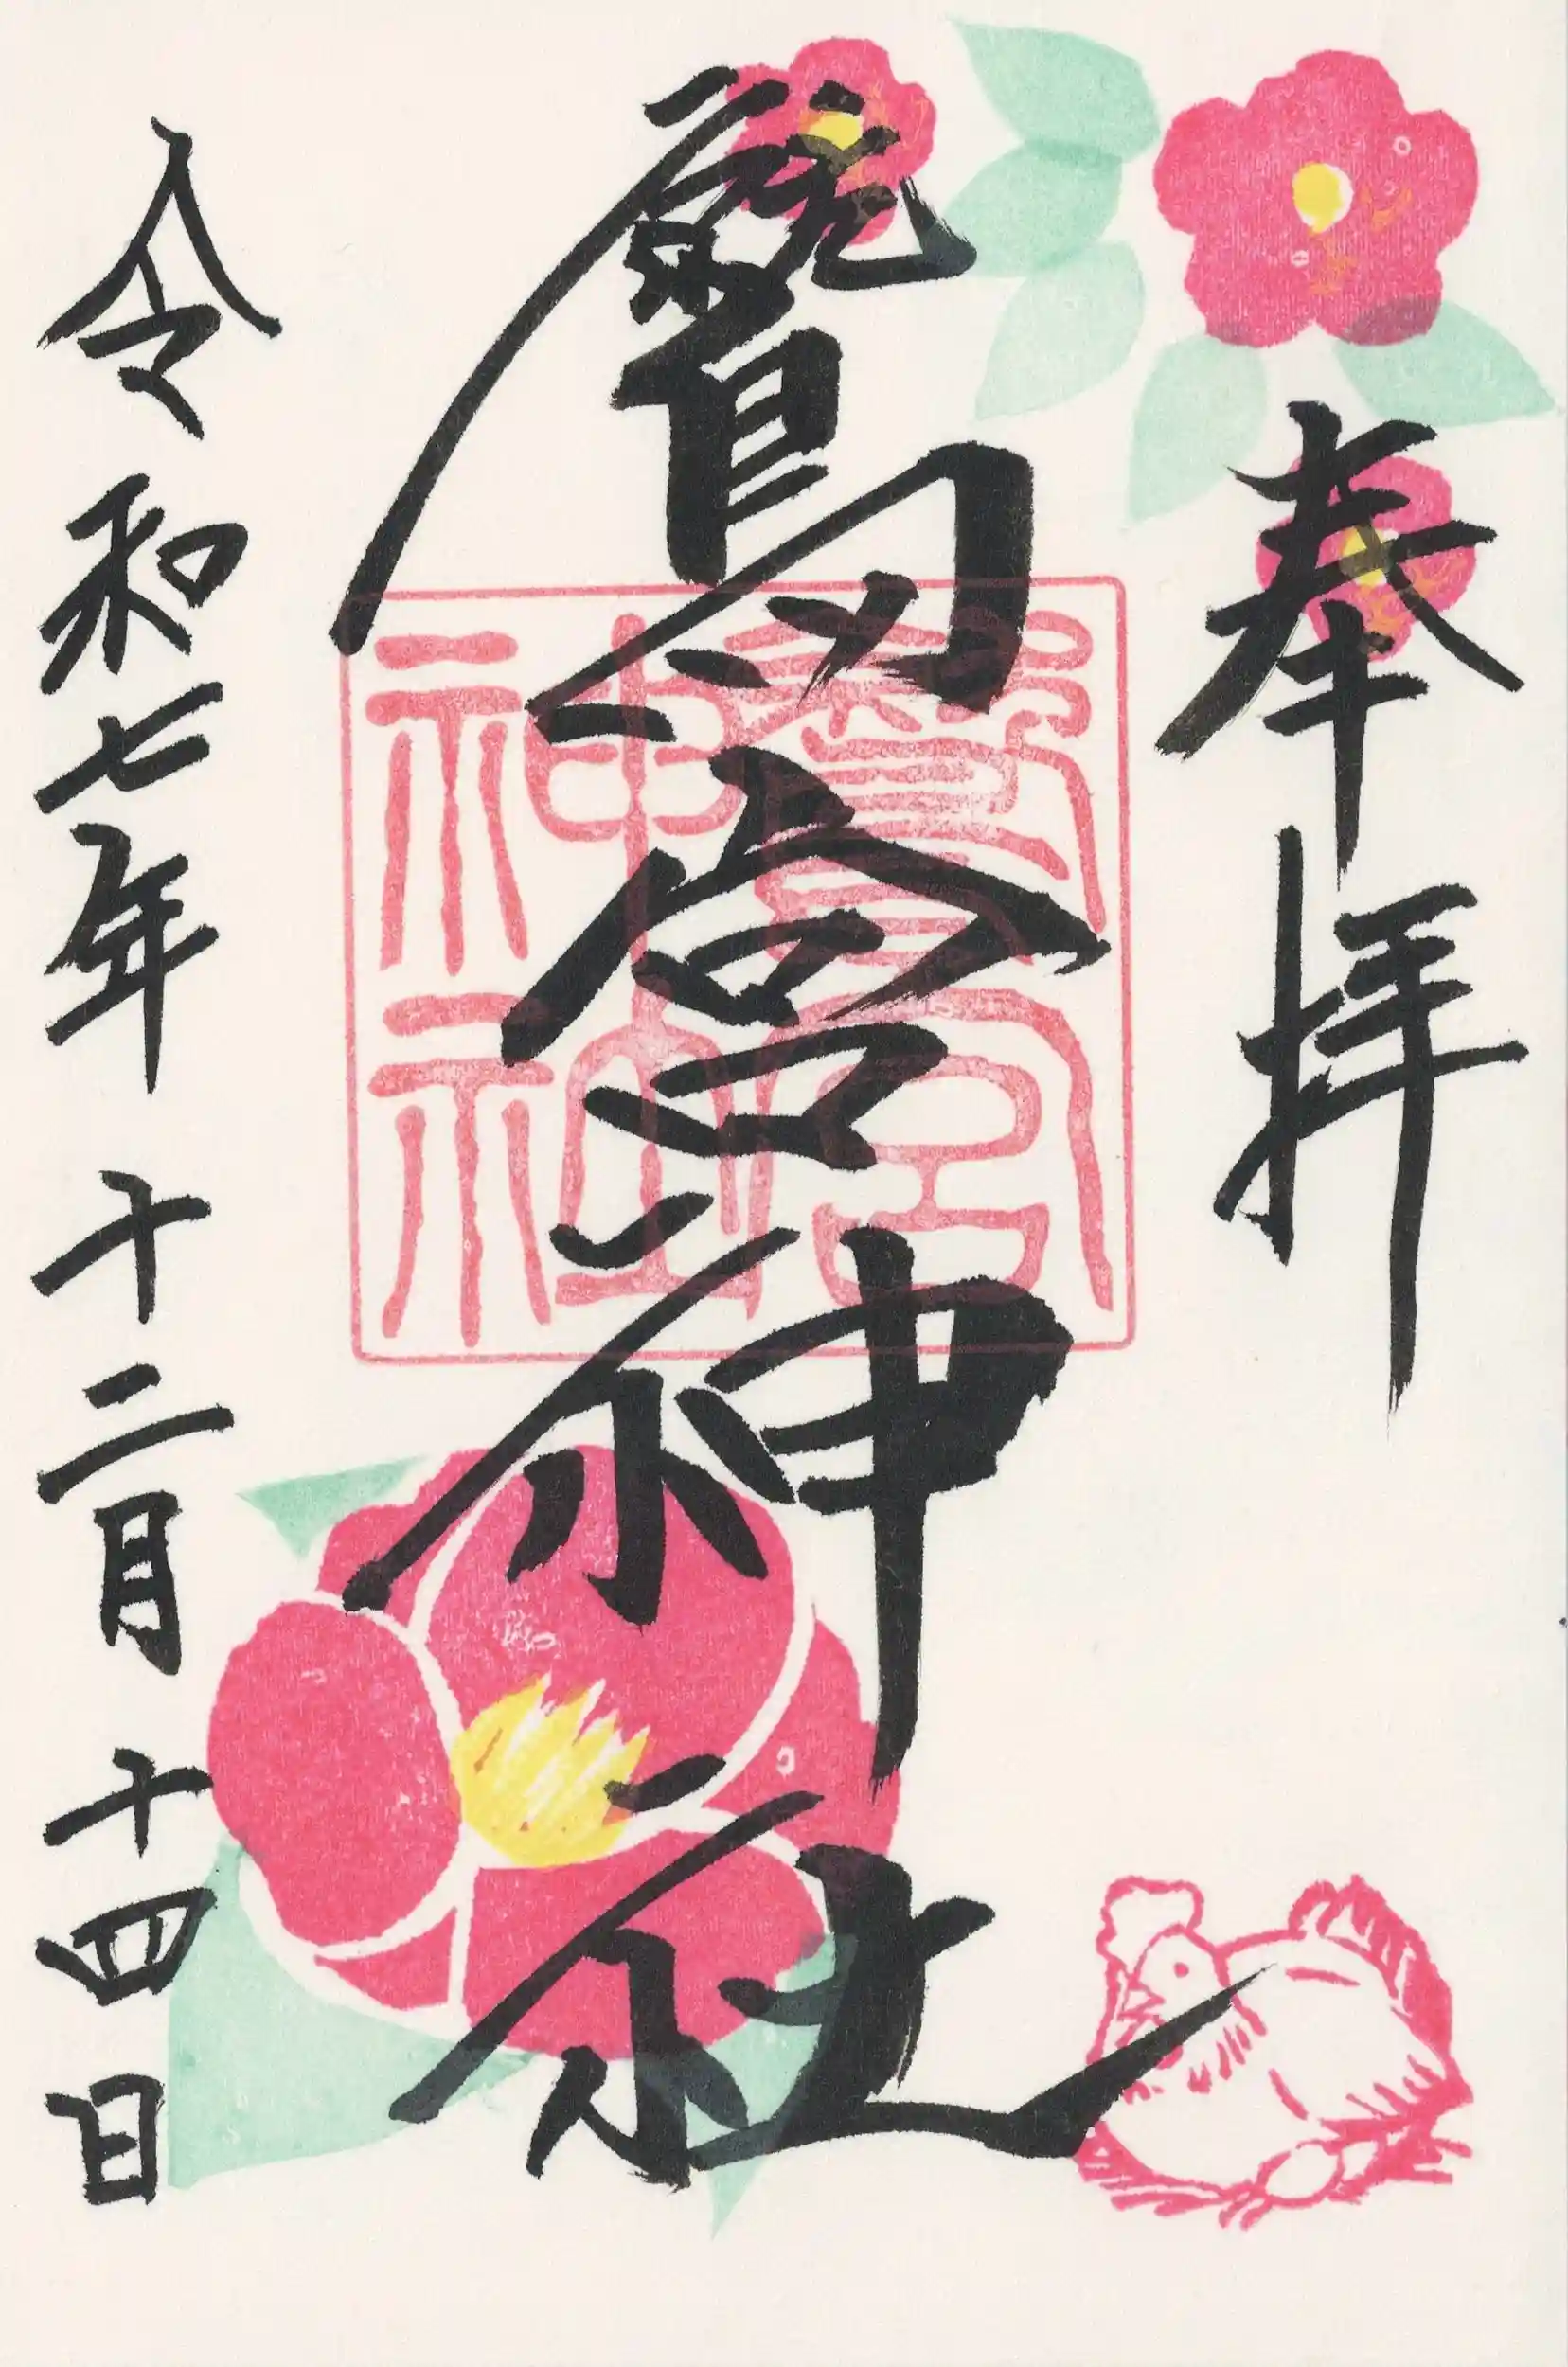 奉拝
鷲宮神社
鷲宮神社
令和七年 十二月 十四日